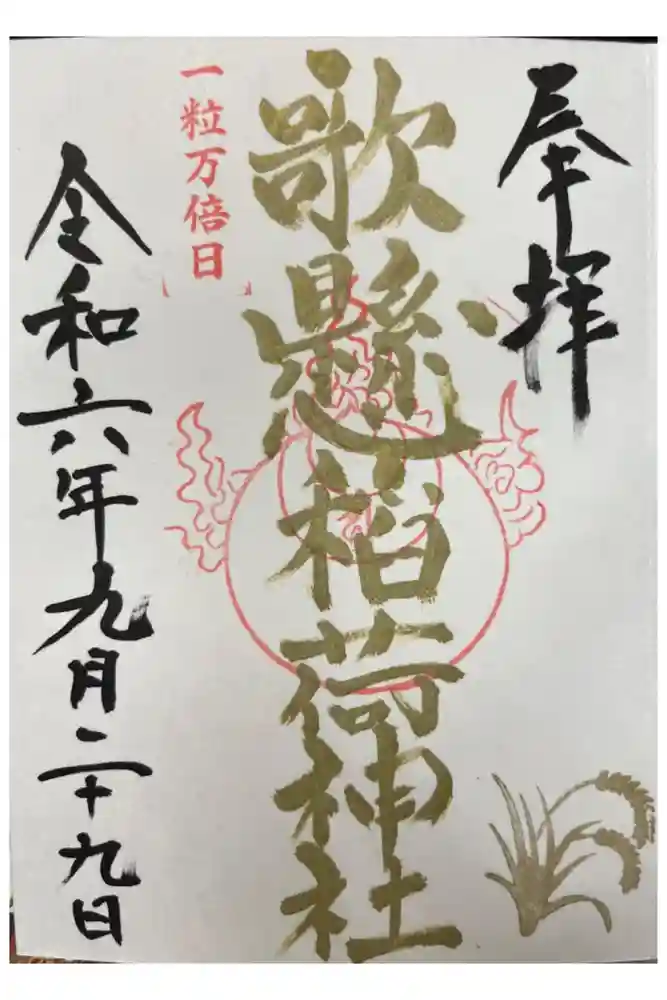 奉拝
歌懸稲荷神社
一粒万倍日
令和六年九月二十九日